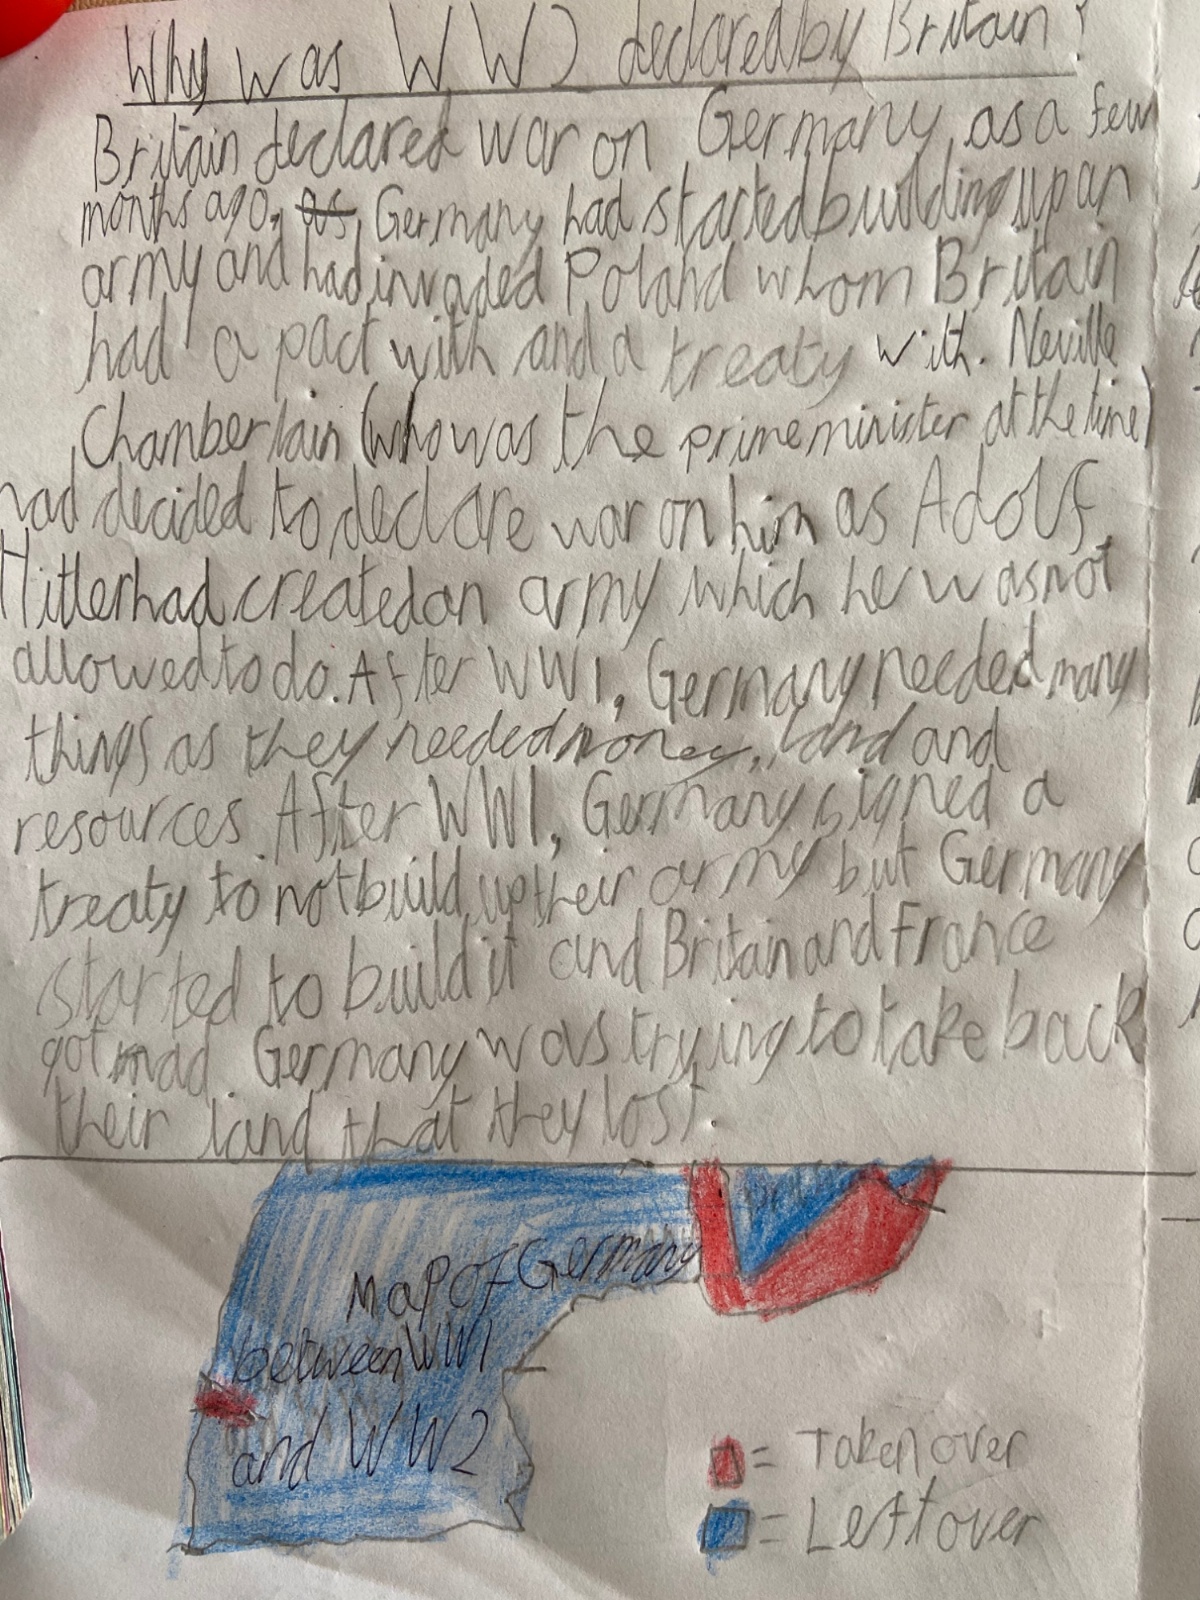 Why was WW2 declared by Britain?
Britain declared war on Germany, as a few
months ago, as, Germany had started building up an
army and had invaded Poland whom Britain
had a pact with and a treaty with. Neville
Chamberlain (who was the prime minister at the time)
had decided to declare war on him as Adolf
Hitler had created an army which he was not
allowed to do. After WW1, Germany needed many
things as they needed money, land and
resources. After WW1, Germany signed a
treaty to not build up their army but Germany
started to build it and Britain and France
got mad. Germany was trying to take back
their land that they lost.
Map of Germany
between WW1
and WW2
= Taken over
= Left over